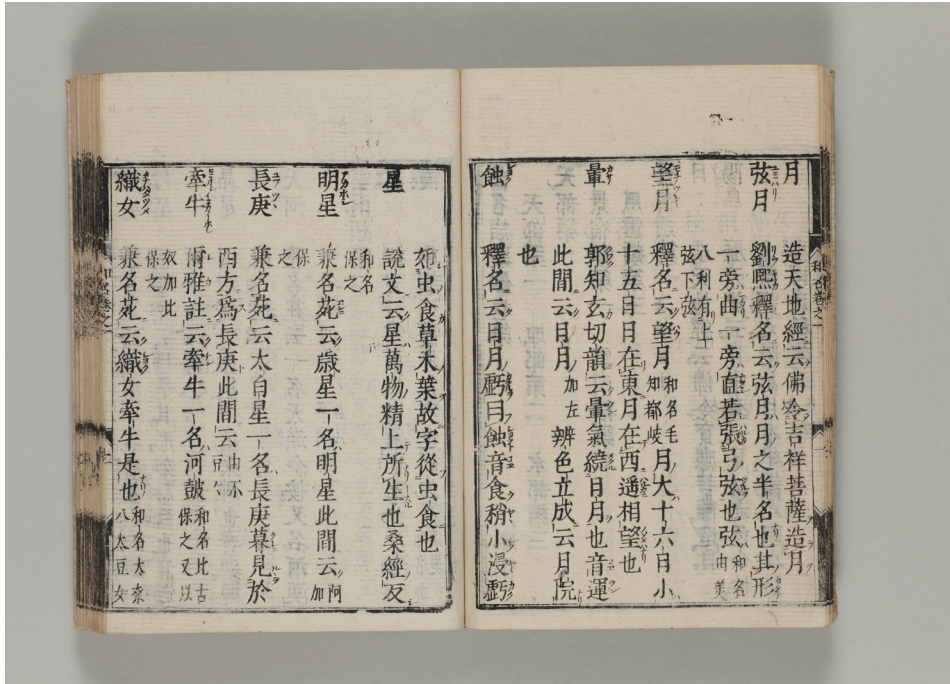 月 造天地經云佛令吉祥菩薩造月
弦月 劉熙釋名云弦月之半名也其形
一旁曲一旁直若張弓弦也弦 和名由美
八利有上弦下弦
望月 釋名云望月 和名毛知都岐 月大十六日小
十五日日在東月在西遥相望也
暈 郭知玄切韻云暈氣繞日月也音運
此間云日月 加左 辨色立成云月院
也
蝕 釋名云日月虧曰蝕音食稍小浸虧
如虫食草木葉故字從虫食也
星 說文云星萬物精上所生也桑經反
和名保之
明星 兼名苑云歳星一名明星此間云 阿加
保之
長庚 兼名苑云太白星一名長庚暮見於
西方爲長庚此間云 由不豆々
牽牛 爾雅註云牽牛一名河鼓 和名比古保之又以
奴加比保之
織女 兼名苑云織女牽牛是也 和名太奈八太豆女
和名卷之一
和名卷之一